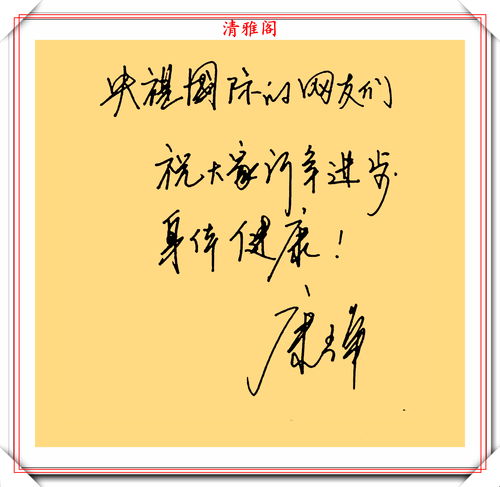 清雅阁
央视國际的网友们
祝大家新年进步.
身体健康！
康辉